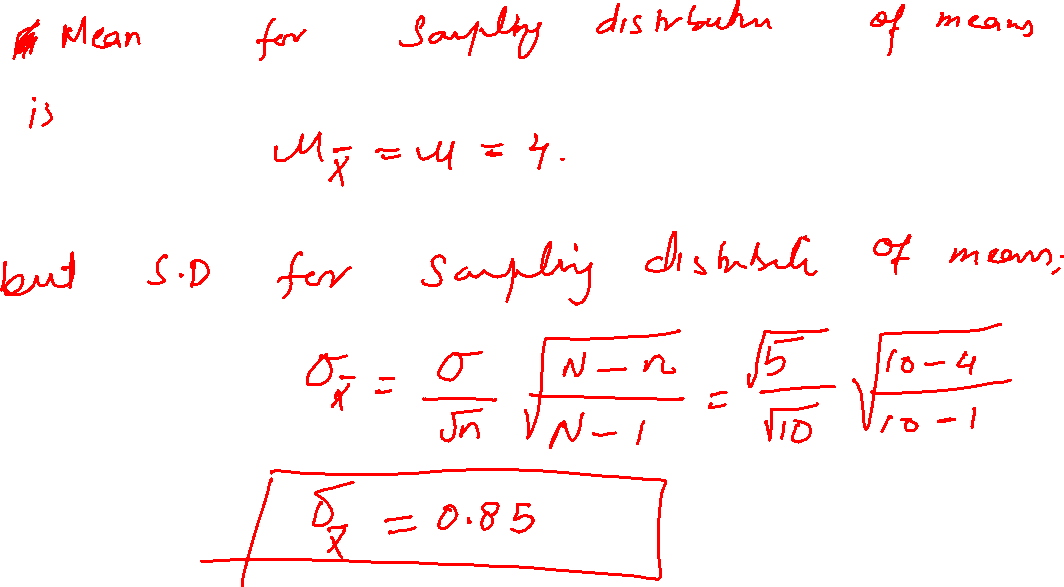 Mean for Sampling distribution of means
is
μ_x̄ = μ = 4.
but S.D for Sampling distribution of means,
σ_x̄ = σ/√n √((N-n)/(N-1)) = √5/√10 √((10-4)/(10-1))
σ_x̄ = 0.85